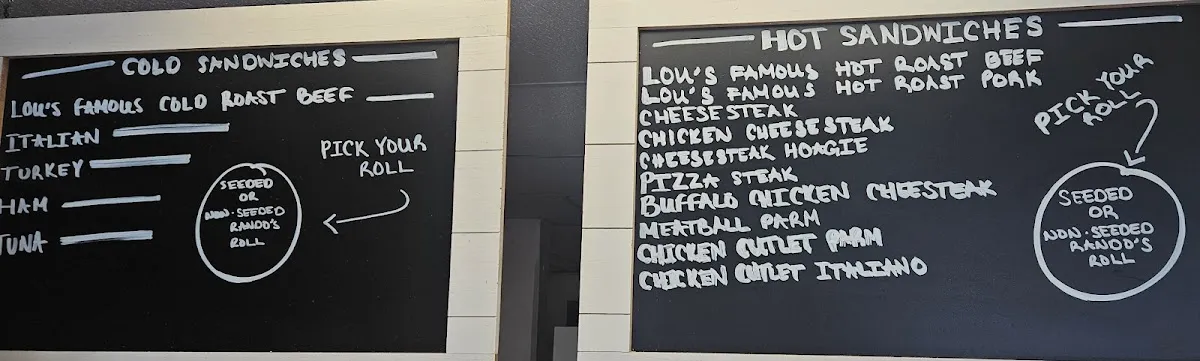 COLD SANDWICHES
LOU'S FAMOUS COLD ROAST BEEF
ITALIAN
TURKEY
HAM
TUNA
PICK YOUR
ROLL
SEEDED
OR
NON-SEEDED
RANDO'S
ROLL
HOT SANDWICHES
LOU'S FAMOUS HOT ROAST BEEF
LOU'S FAMOUS HOT ROAST PORK
CHEESESTEAK
CHICKEN CHEESESTEAK
CHEESESTEAK HOAGIE
PIZZA STEAK
BUFFALO CHICKEN CHEESTEAK
MEATBALL PARM
CHICKEN CUTLET PARM
CHICKEN CUTLET ITALIANO
PICK YOUR
ROLL
SEEDED
OR
NON-SEEDED
RANDO'S
ROLL